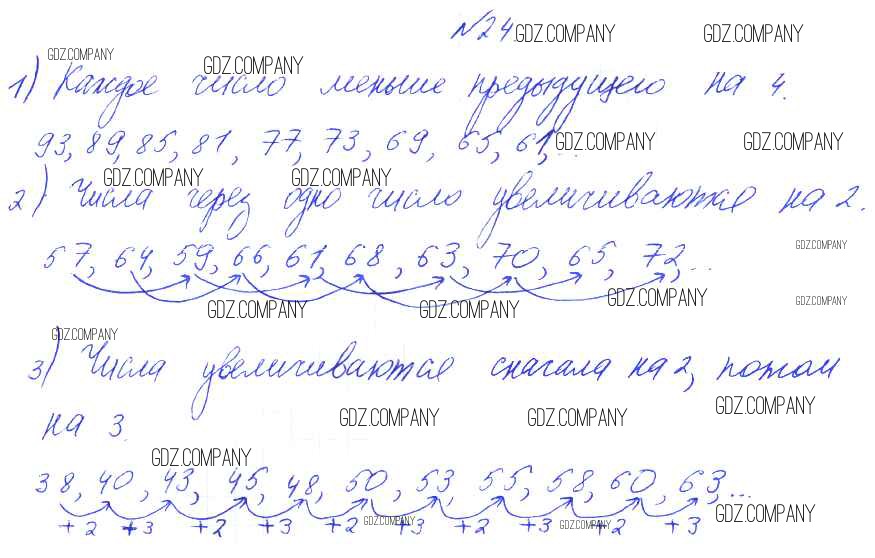 №24 GDZ.COMPANY GDZ.COMPANY
GDZ.COMPANY GDZ.COMPANY
1) Каждое число меньше предыдущего на 4.
93, 89, 85, 81, 77, 73, 69, 65, 61,... GDZ.COMPANY GDZ.COMPANY
GDZ.COMPANY GDZ.COMPANY
2) Числа через одно число увеличиваются на 2.
57, 64, 59, 66, 61, 68, 63, 70, 65, 72,... GDZ.COMPANY
GDZ.COMPANY GDZ.COMPANY GDZ.COMPANY GDZ.COMPANY
GDZ.COMPANY
3) Числа увеличиваются сначала на 2, потом
на 3. GDZ.COMPANY GDZ.COMPANY GDZ.COMPANY
GDZ.COMPANY
38, 40, 43, 45, 48, 50, 53, 55, 58, 60, 63,...
+2 +3 +2 +3 +2 GDZ.COMPANY +3 +2 +3 GDZ.COMPANY +2 +3 GDZ.COMPANY